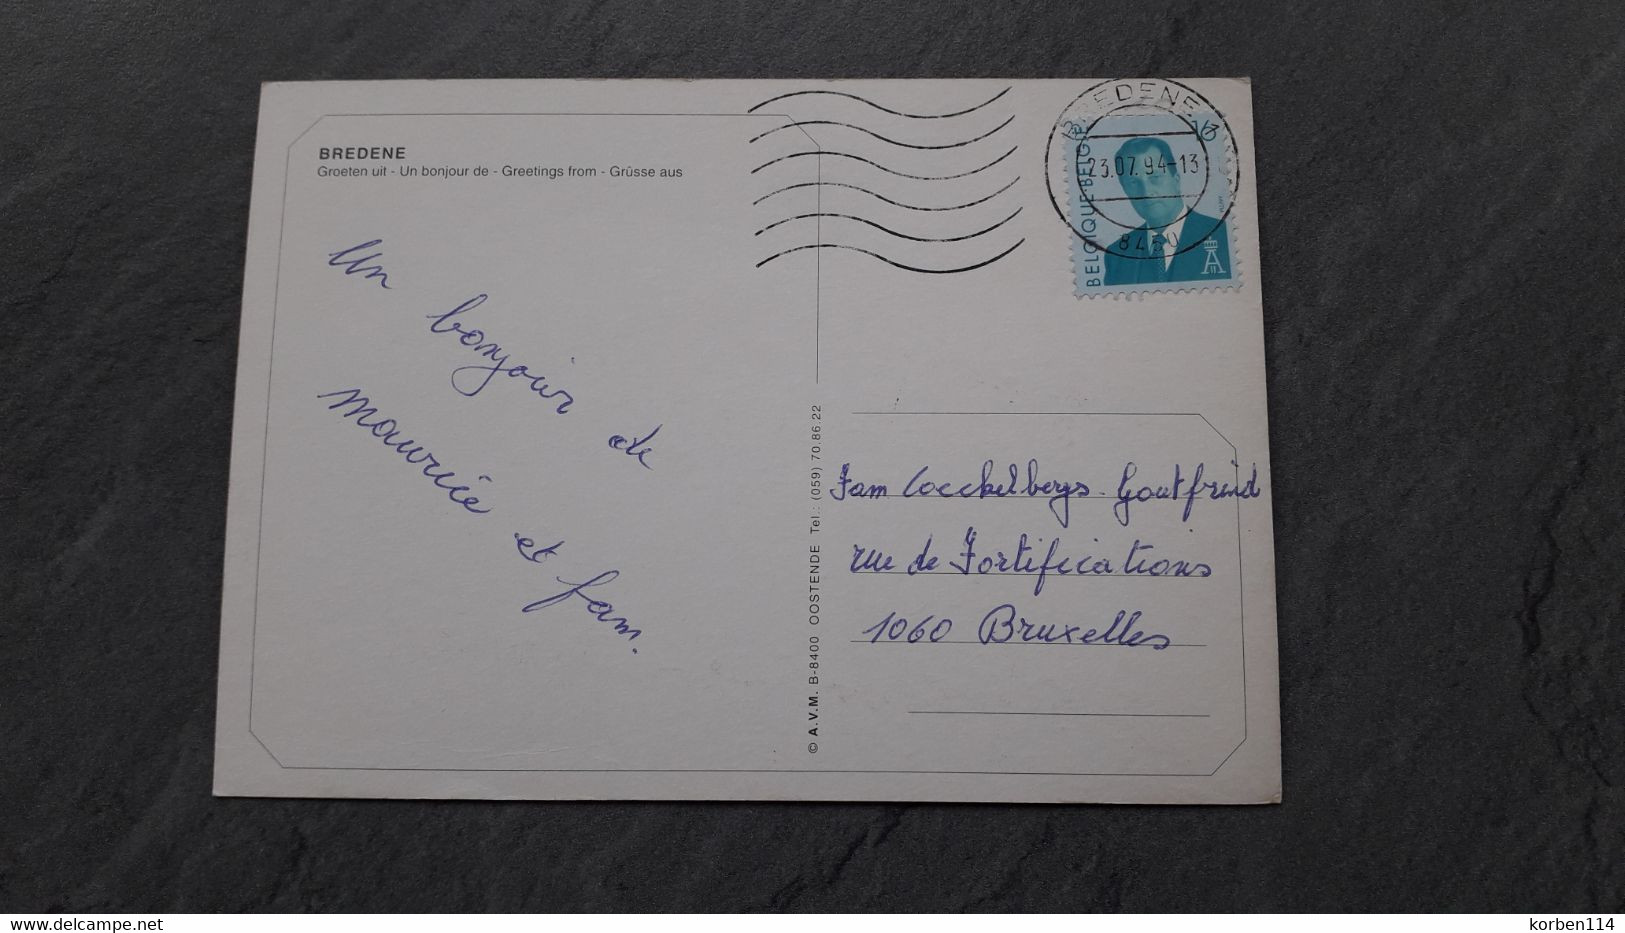 BREDENE
Groeten uit - Un bonjour de - Greetings from - Grüsse aus
Un bonjour de
maurice et fam.
© A.V.M. B-8400 OOSTENDE Tel.: (059) 70.86.22
BREDENE
23.07.94-13
8450
BELGIQUE·BELGIË
Fam Coeckelbergs. Goutfreind
rue de Fortifications
1060 Bruxelles
www.delcampe.net
korben114